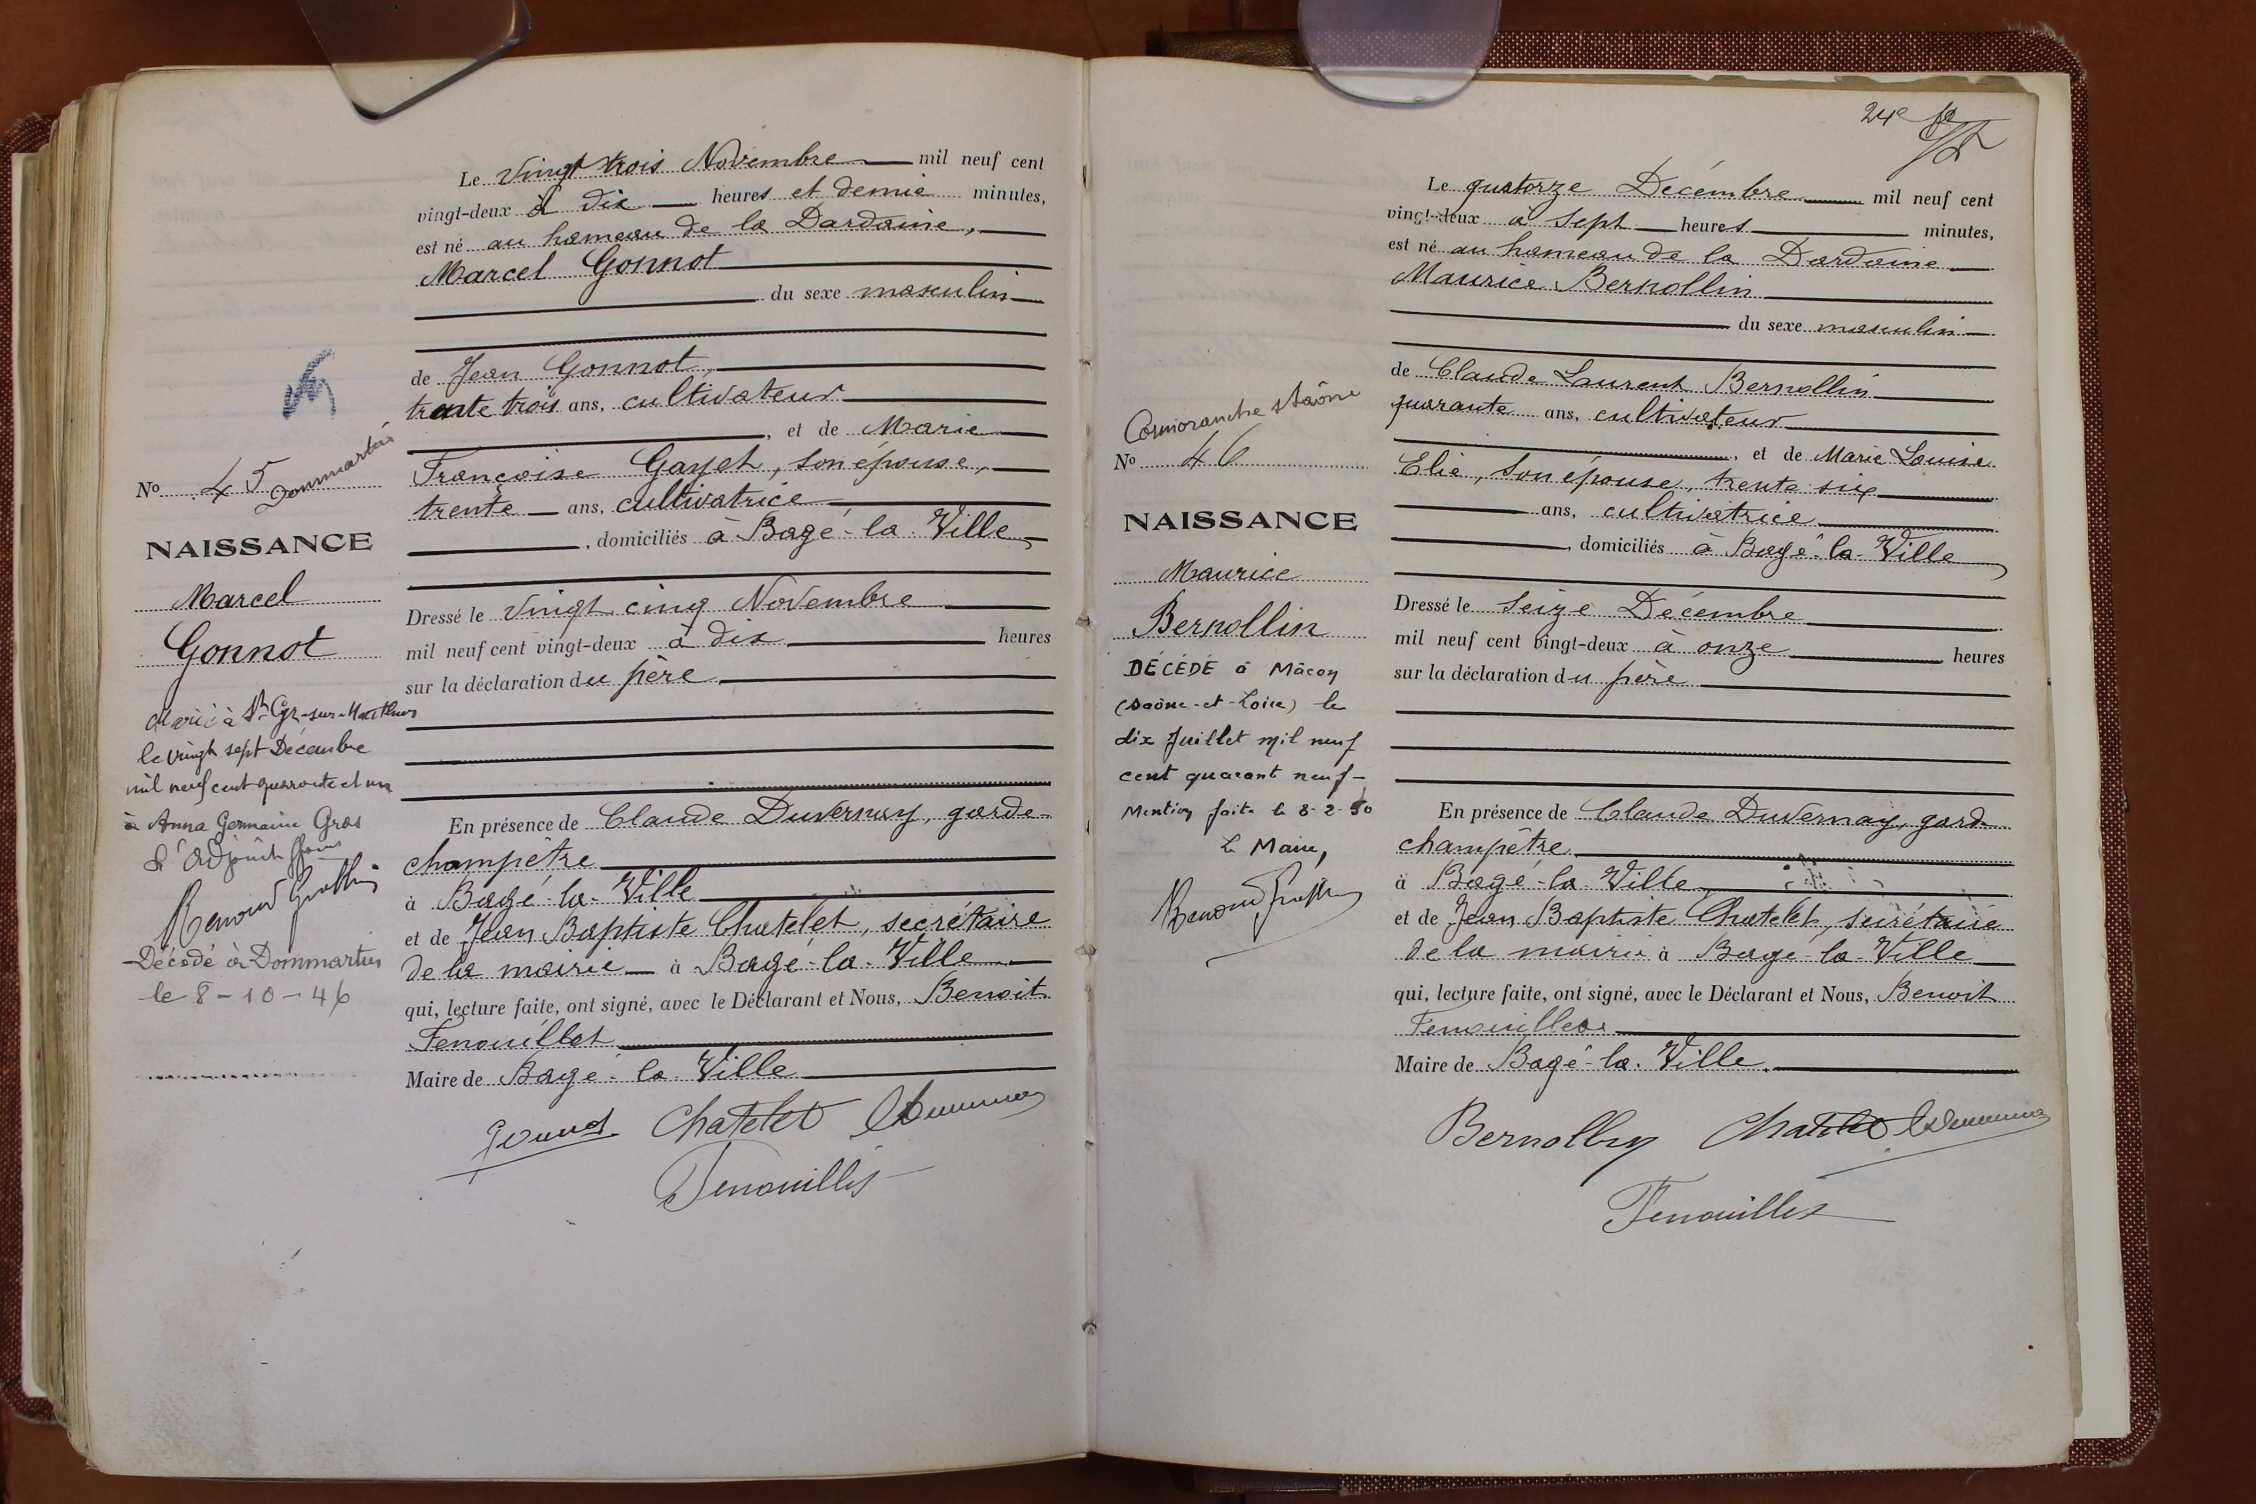 Le vingt trois Novembre mil neuf cent
vingt-deux à dix heures et demie minutes,
est né au hameau de la Dardaine,
Marcel Gonnot
du sexe masculin
de Jean Gonnot,
trente trois ans, cultivateur
, et de Marie
Françoise Gayet, son épouse,
trente ans, cultivatrice
, domiciliés à Bagé-la-Ville
Dressé le vingt cinq Novembre
mil neuf cent vingt-deux à dix heures
sur la déclaration du père
En présence de Claude Duvernay, garde-
champêtre
à Bagé-la-Ville
et de Jean Baptiste Chatelet, secrétaire
de la mairie à Bagé-la-Ville
qui, lecture faite, ont signé, avec le Déclarant et Nous, Benoit
Fenouillet
Maire de Bagé-la-Ville
Gonnot Chatelet
Fenouillet
Dommartin
No 45
NAISSANCE
Marcel
Gonnot
Marié à St Cyr-sur-Menthon
le vingt sept Décembre
mil neuf cent quarante et un
à Anna Germaine Gras
L'Adjoint
Décédé à Dommartin
le 8-10-46
24e
Le quatorze Décembre mil neuf cent
vingt-deux à sept heures minutes,
est né au hameau de la Dardaine
Maurice Bernollin
du sexe masculin
de Claude Laurent Bernollin
quarante ans, cultivateur
, et de Marie Louise
Elie, son épouse, trente six
ans, cultivatrice
, domiciliés à Bagé-la-Ville
Dressé le seize Décembre
mil neuf cent vingt-deux à onze heures
sur la déclaration du père
En présence de Claude Duvernay, garde
champêtre
à Bagé-la-Ville
et de Jean Baptiste Chatelet, secrétaire
de la mairie à Bagé-la-Ville
qui, lecture faite, ont signé, avec le Déclarant et Nous, Benoit
Fenouillet
Maire de Bagé-la-Ville.
Bernollin Chatelet
Fenouillet
Cormoranche s/Saône
No 46
NAISSANCE
Maurice
Bernollin
DÉCÉDÉ à Mâcon
(Saône-et-Loire) le
dix Juillet mil neuf
cent quarant neuf-
Mention faite le 8-2-50
Le Maire,